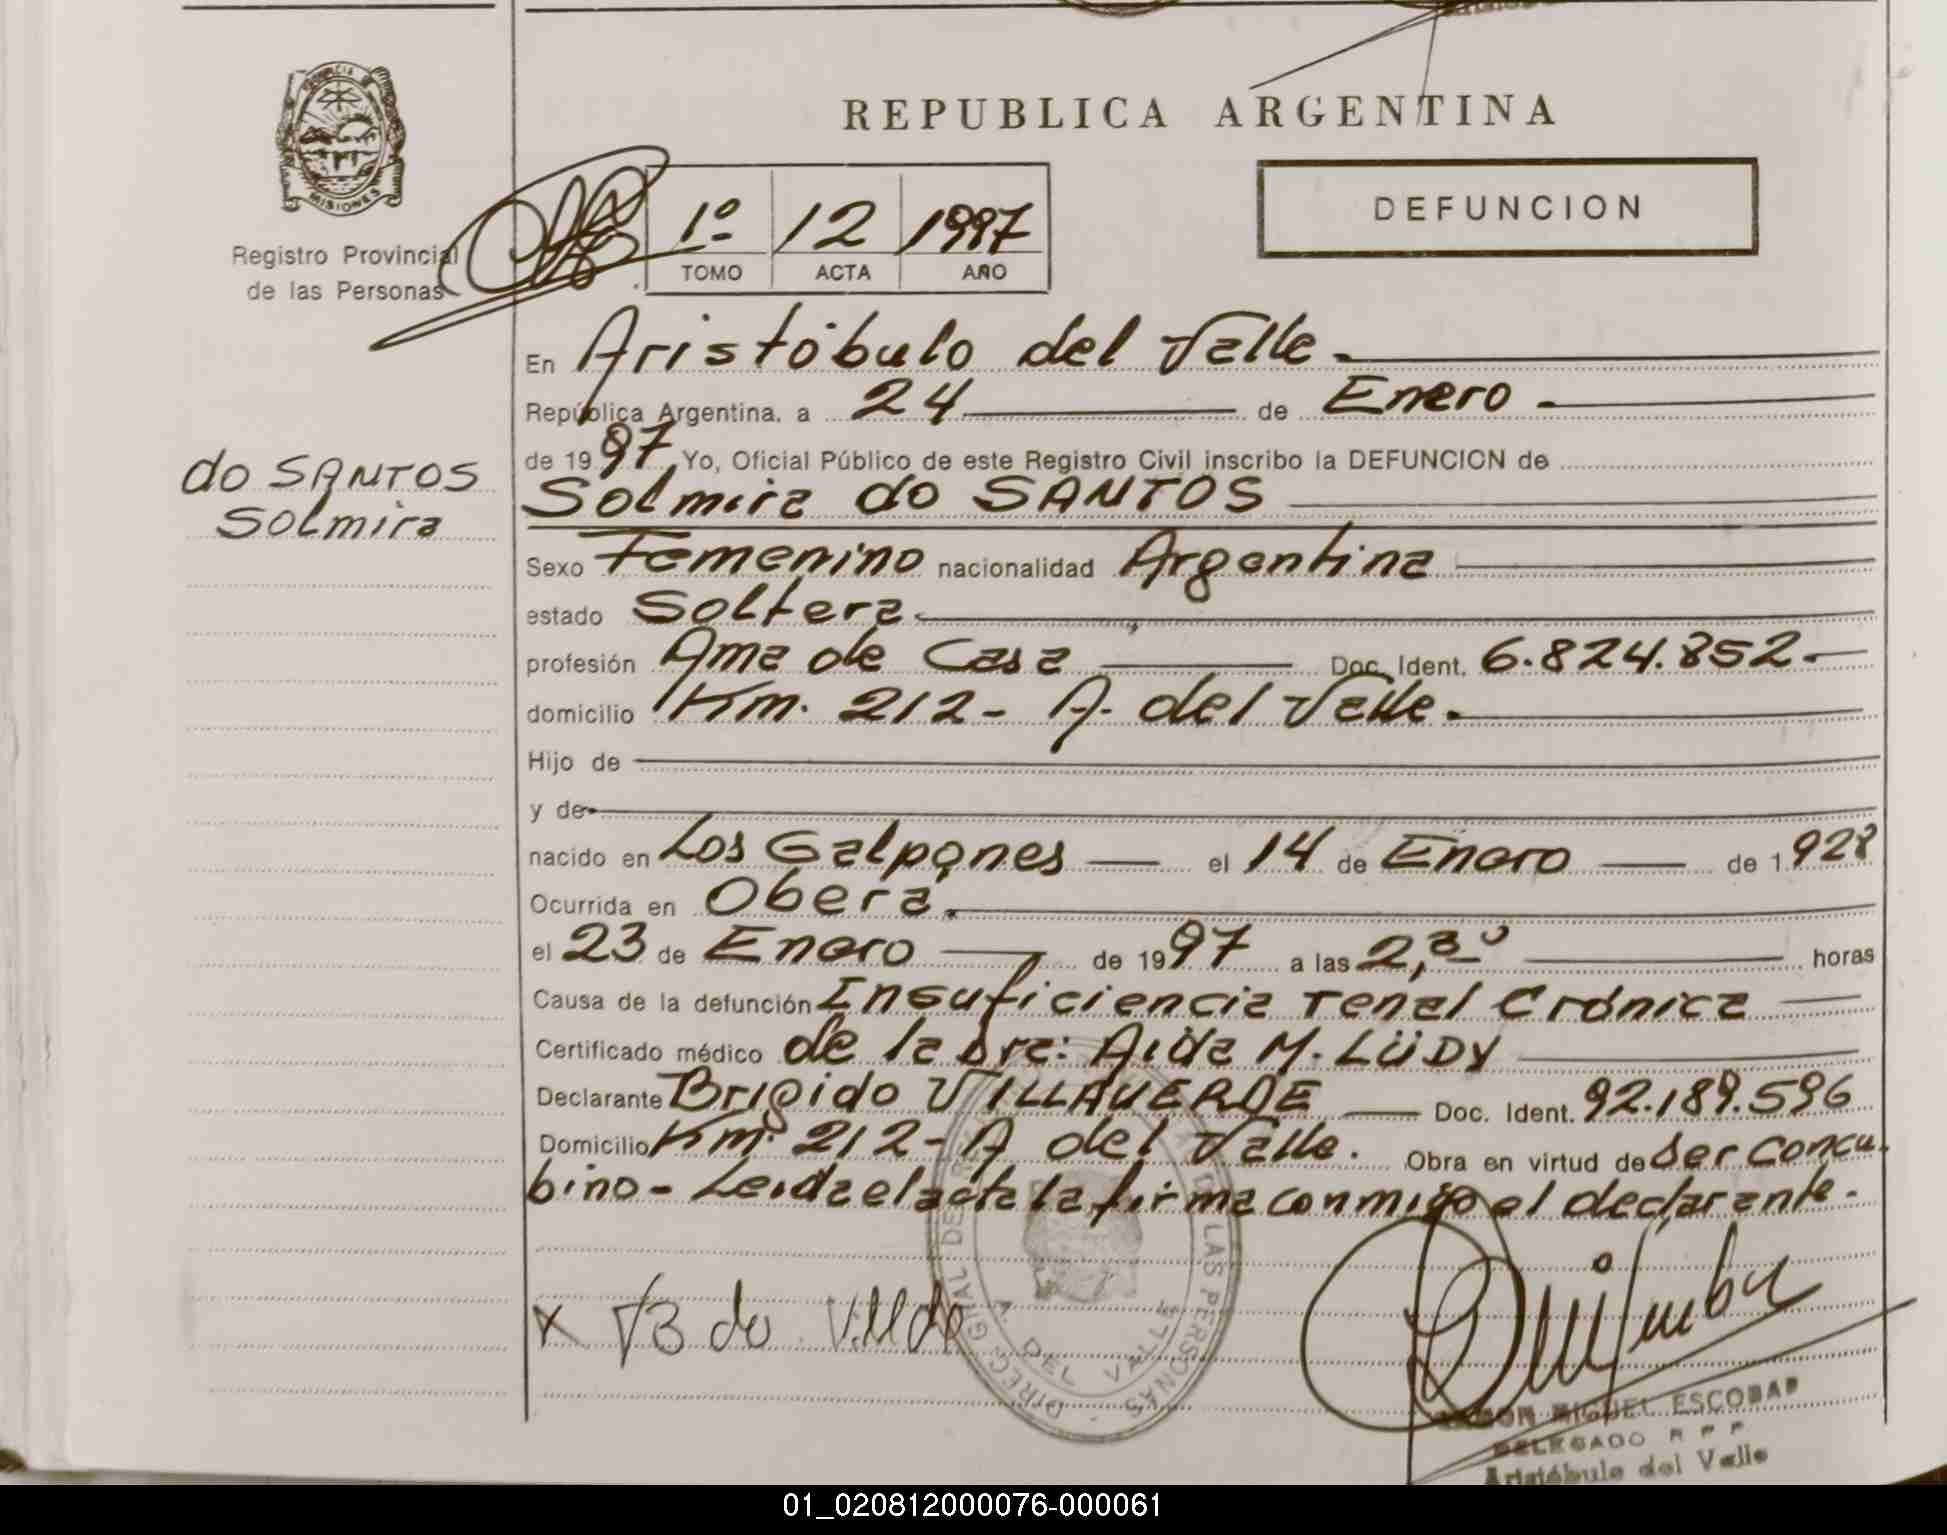 PROVINCIA DE
MISIONES
Registro Provincial
de las Personas
REPUBLICA ARGENTINA
1º 12 1997
TOMO ACTA AÑO
DEFUNCION
En Aristóbulo del Valle.
República Argentina, a 24 de Enero.
de 1997 Yo, Oficial Público de este Registro Civil inscribo la DEFUNCION de
do SANTOS
Solmira
Solmira do SANTOS
Sexo Femenino nacionalidad Argentina
estado Soltera.
profesión Ama de Casa Doc. Ident. 6.824.852.
domicilio Km. 212 - A. del Valle.
Hijo de
y de
nacido en Los Galpones el 14 de Enero de 1.928
Ocurrida en Oberá.
el 23 de Enero de 1997 a las 2,30 horas
Causa de la defunción Insuficiencia renal Crónica
Certificado médico de la Dra: Aida M. LÜDY
Declarante Brigido VILLAVERDE Doc. Ident. 92.189.596
Domicilio Km. 212 - A del Valle. Obra en virtud de ser concu-
bino - Leida el acta la firma conmigo el declarante.
X
A. DEL VALLE
DE LAS PERSONAS
MIGUEL ESCOBAR
DELEGADO R P P
Aristóbulo del Valle
01_020812000076-000061